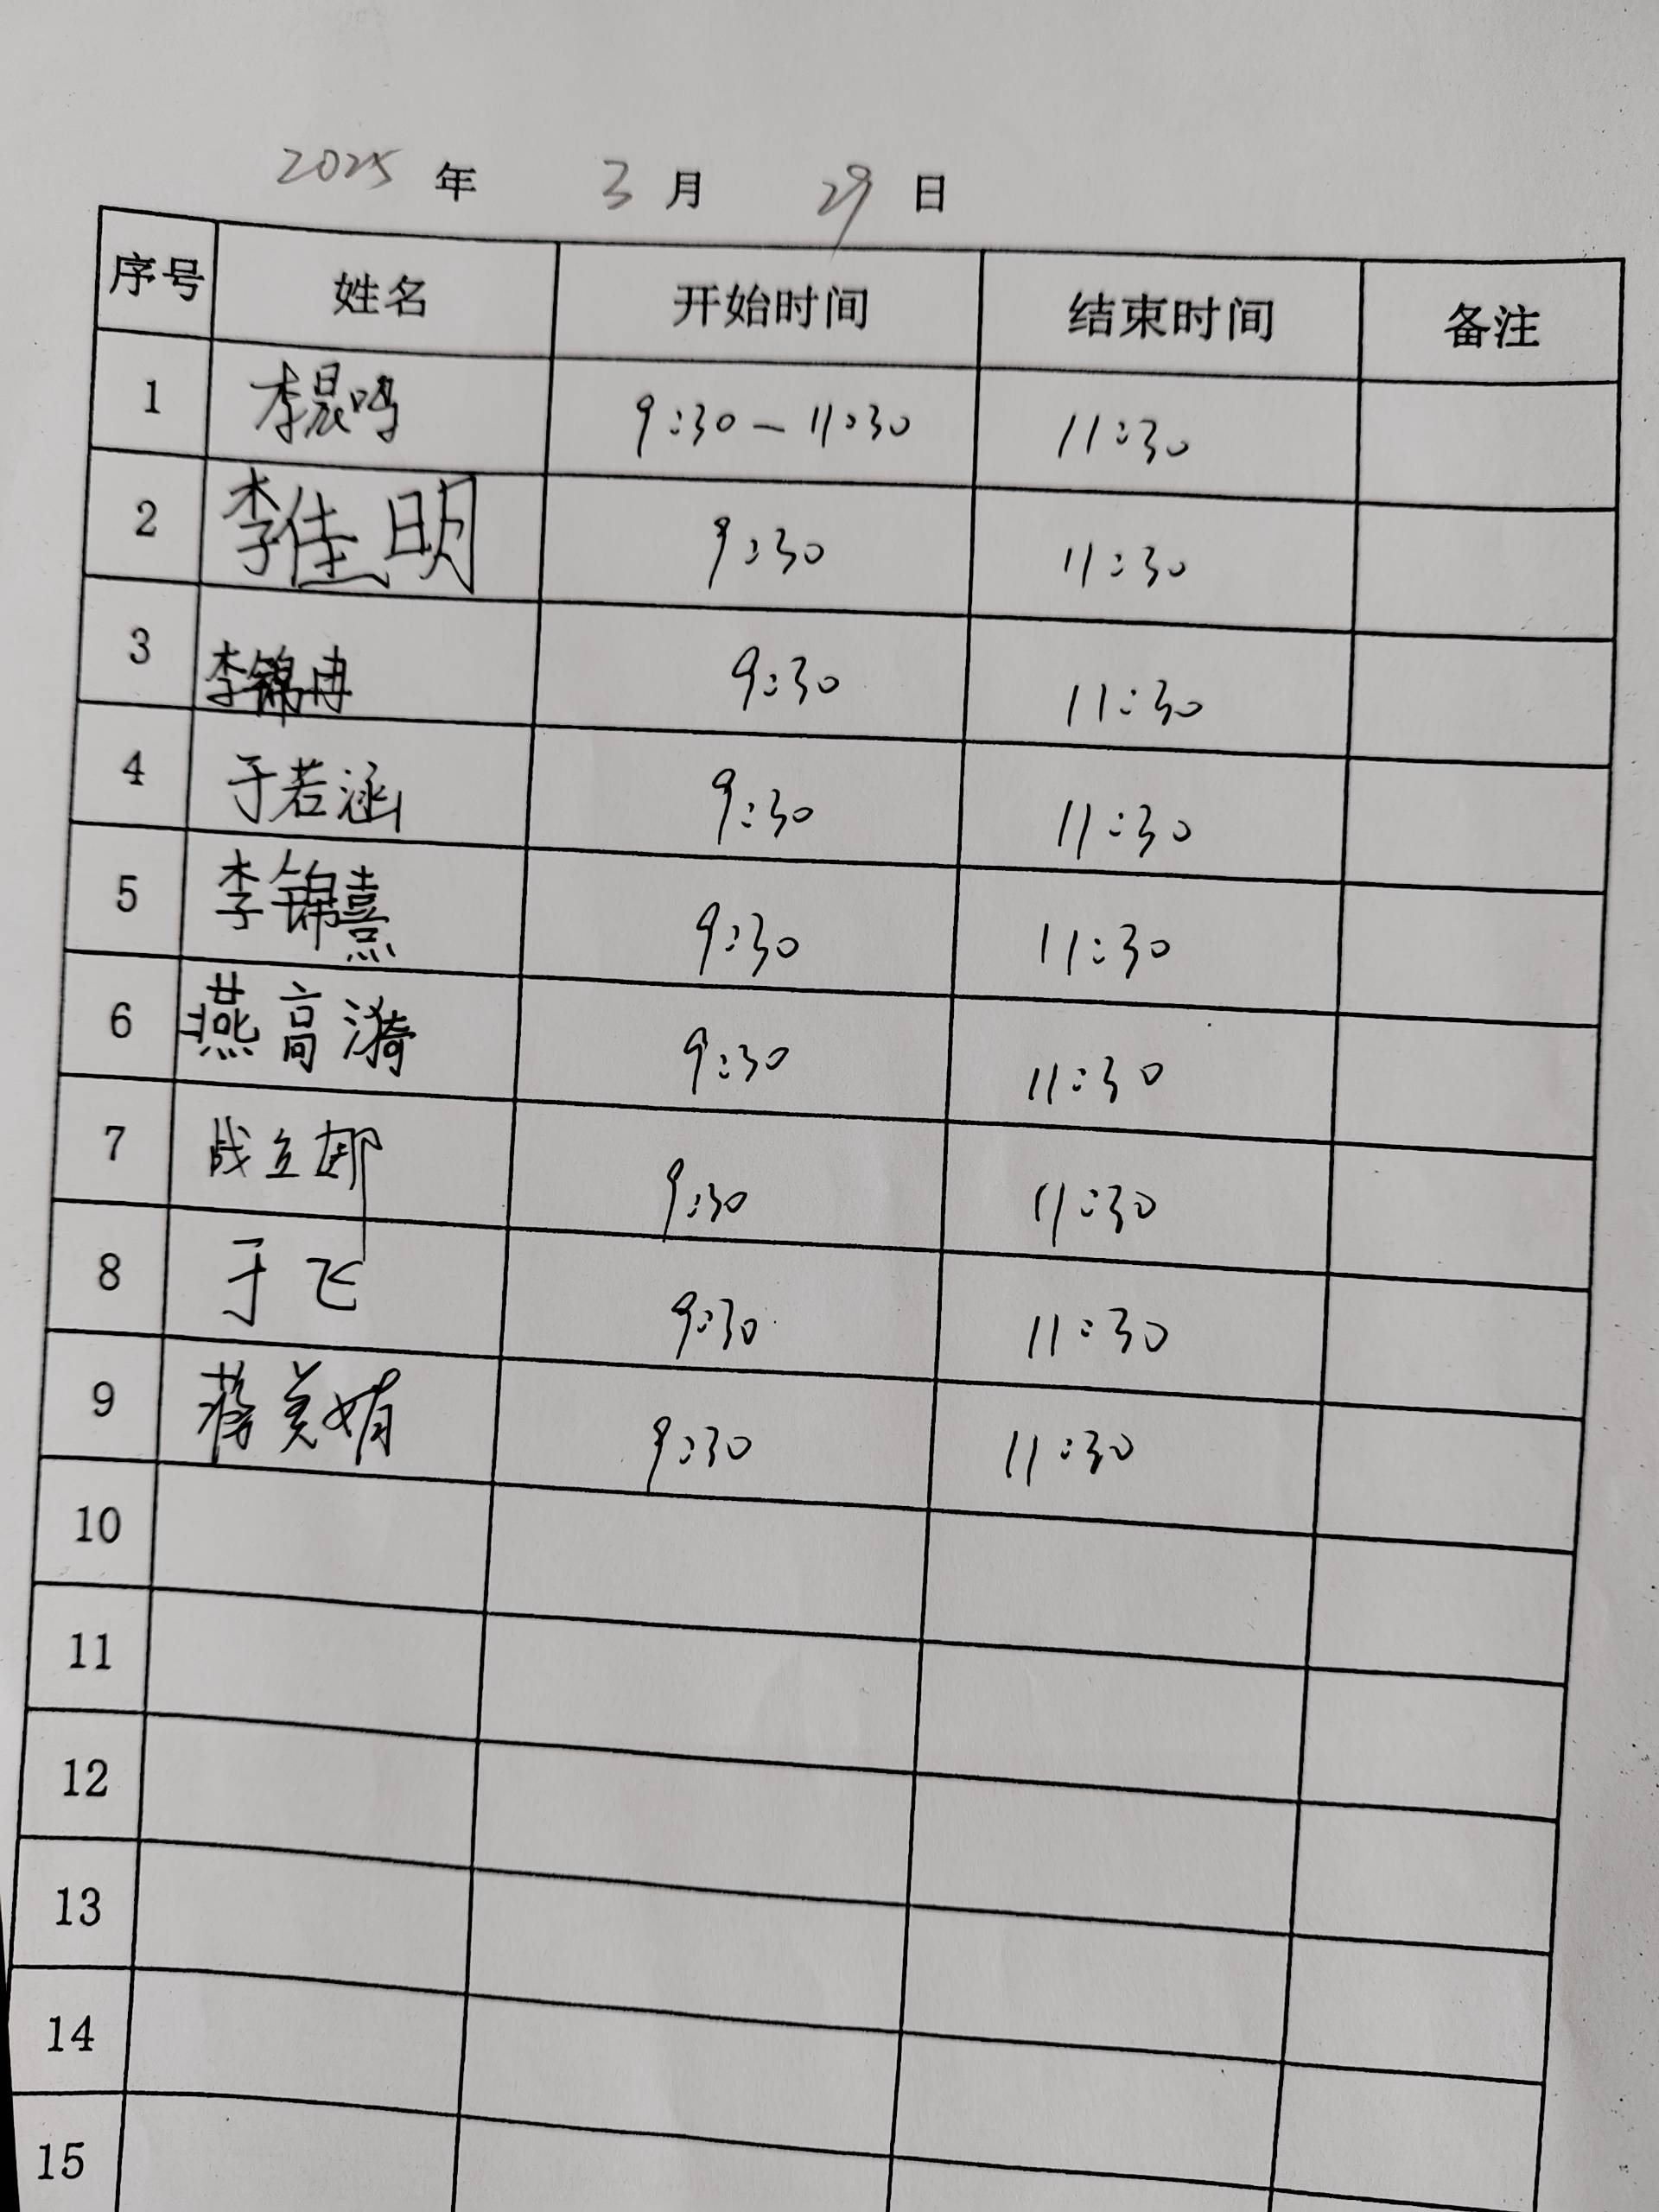 2025 年 3 月 29 日
序号 姓名 开始时间 结束时间 备注
1 李晨鸣 9:30-11:30 11:30
2 李佳明 9:30 11:30
3 李锦冉 9:30 11:30
4 于若涵 9:30 11:30
5 李锦熹 9:30 11:30
6 燕高漪 9:30 11:30
7 战立娜 9:30 11:30
8 于飞 9:30 11:30
9 蒋美婧 9:30 11:30
10
11
12
13
14
15